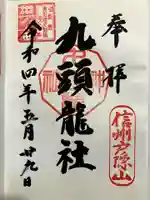 奉拝
信州戸隠山
九頭龍社
令和四年五月廿九日